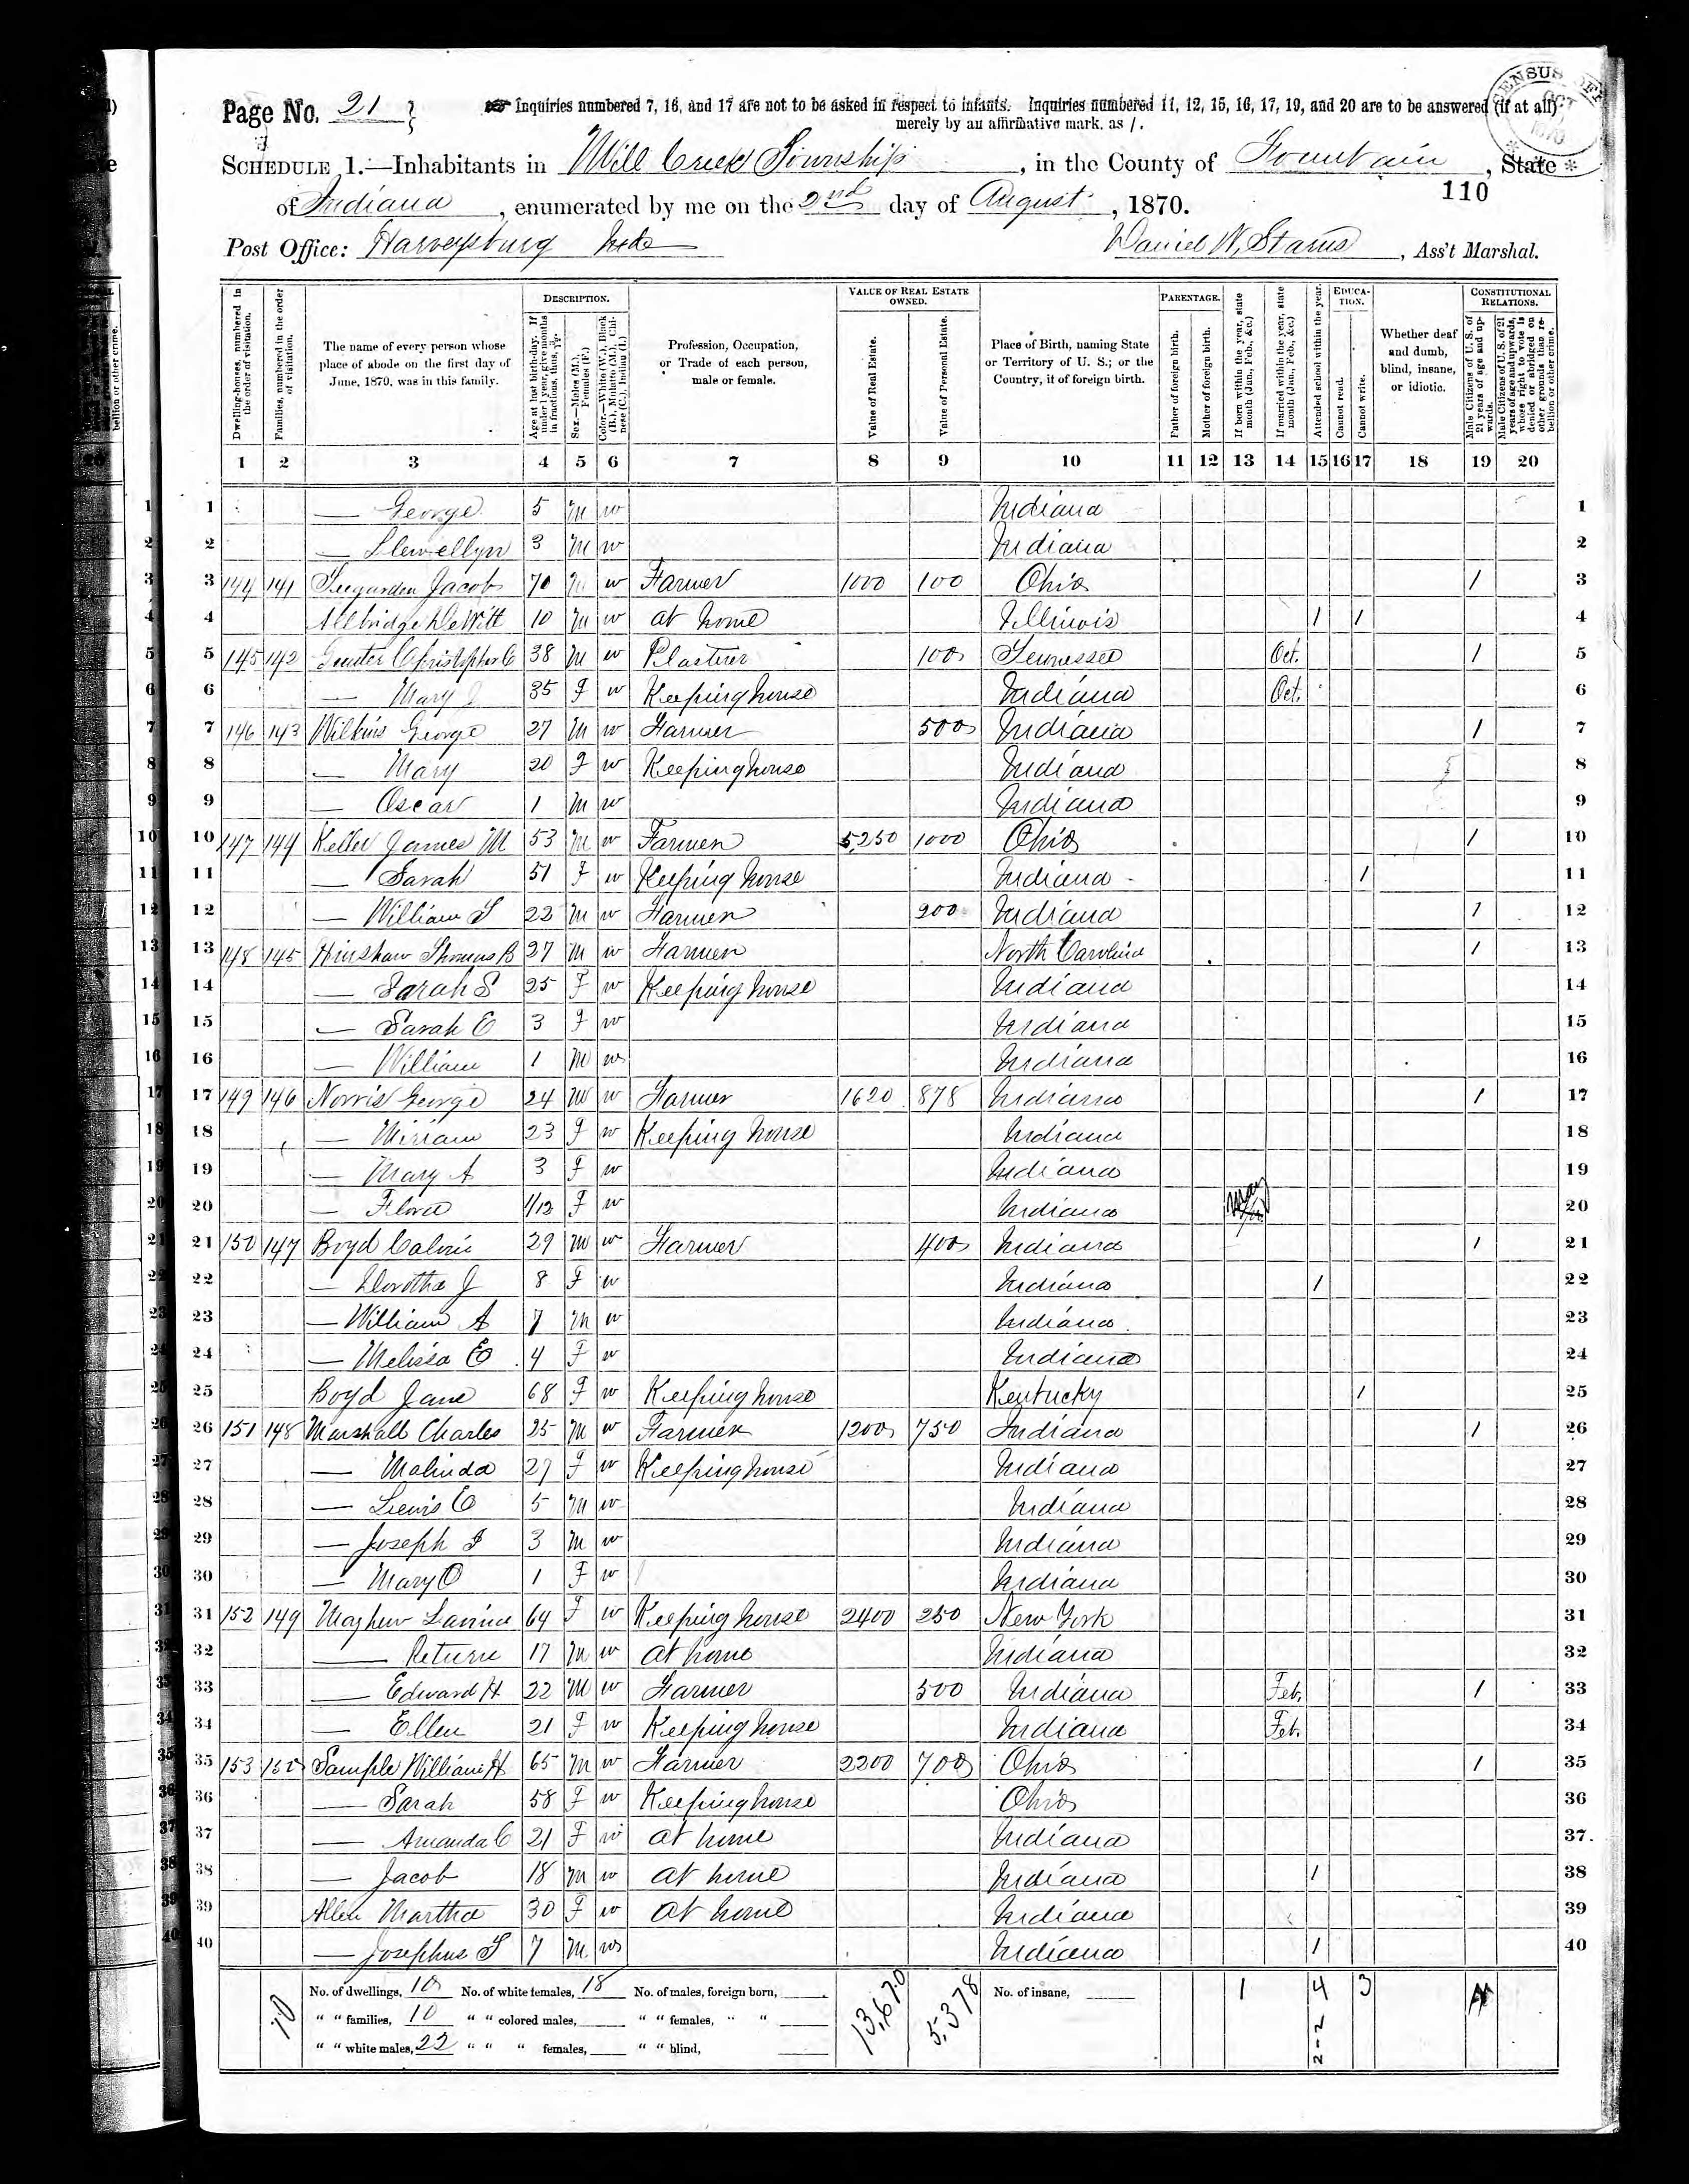 Page No. 21
Inquiries numbered 7, 16, and 17 are not to be asked in respect to infants. Inquiries numbered 11, 12, 15, 16, 17, 19, and 20 are to be answered (if at all)
merely by an affirmative mark, as /.
CENSUS OFF
OCT
1870
SCHEDULE 1.—Inhabitants in Mill Creek Township, in the County of Fountain, State
of Indiana, enumerated by me on the 2nd day of August, 1870.
110
Post Office: Harveysburg Daniel W. Starns, Ass't Marshal.
DESCRIPTION.
VALUE OF REAL ESTATE OWNED.
PARENTAGE.
EDUCATION.
CONSTITUTIONAL RELATIONS.
Dwelling-houses, numbered in the order of visitation.
Families, numbered in the order of visitation.
The name of every person whose place of abode on the first day of June, 1870, was in this family.
Age at last birth-day. If under 1 year, give months in fractions, thus, 3/12.
Sex.—Males (M.), Females (F.)
Color.—White (W.), Black (B.), Mulatto (M.), Chinese (C.), Indian (I.)
Profession, Occupation, or Trade of each person, male or female.
Value of Real Estate.
Value of Personal Estate.
Place of Birth, naming State or Territory of U. S.; or the Country, if of foreign birth.
Father of foreign birth.
Mother of foreign birth.
If born within the year, state month (Jan., Feb., &c.)
If married within the year, state month (Jan., Feb., &c.)
Attended school within the year.
Cannot read.
Cannot write.
Whether deaf and dumb, blind, insane, or idiotic.
Male Citizens of U. S. of 21 years of age and upwards.
Male Citizens of U. S. of 21 years of age and upwards, whose right to vote is denied or abridged on other grounds than rebellion or other crime.
1 2 3 4 5 6 7 8 9 10 11 12 13 14 15 16 17 18 19 20
1 — George 5 M W Indiana 1
2 — Llewellyn 3 M W Indiana 2
3 144 141 Teegarden Jacob 70 M W Farmer 1000 100 Ohio 1 3
4 Allbridge DeWitt 10 M W at home Illinois 1 1 4
5 145 142 Christopher C 38 M W Plasterer 100 Tennessee Oct. 1 5
6 — Mary J 35 F W Keeping house Indiana Oct. 6
7 146 143 Wilkins George 27 M W Farmer 500 Indiana 1 7
8 — Mary 20 F W Keeping house Indiana 8
9 — Oscar 1 M W Indiana 9
10 147 144 Keller James M 53 M W Farmer 5250 1000 Ohio 1 10
11 — Sarah 51 F W Keeping house Indiana 1 11
12 — William T 22 M W Farmer 200 Indiana 1 12
13 148 145 Hinshaw Thomas B 27 M W Farmer North Carolina 1 13
14 — Sarah S 25 F W Keeping house Indiana 14
15 — Sarah E 3 F W Indiana 15
16 — William 1 M W Indiana 16
17 149 146 Norris George 24 M W Farmer 1620 878 Indiana 1 17
18 — Miriam 23 F W Keeping house Indiana 18
19 — Mary A 3 F W Indiana 19
20 — Flora 1/12 F W Indiana May 20
21 150 147 Boyd Calvin 29 M W Farmer 400 Indiana 1 21
22 — Dorotha J 8 F W Indiana 1 22
23 — William A 7 M W Indiana 23
24 — Melissa E 4 F W Indiana 24
25 Boyd Jane 68 F W Keeping house Kentucky 1 25
26 151 148 Marshall Charles 25 M W Farmer 1200 750 Indiana 1 26
27 — Malinda 27 F W Keeping house Indiana 27
28 — Lewis E 5 M W Indiana 28
29 — Joseph 3 M W Indiana 29
30 — Mary O 1 F W Indiana 30
31 152 149 Mayhew Lavina 64 F W Keeping house 2400 250 New York 31
32 — Return 17 M W at home Indiana 32
33 — Edward H 22 M W Farmer 500 Indiana Feb. 1 33
34 — Ellen 21 F W Keeping house Indiana Feb. 34
35 153 150 Sample William H 65 M W Farmer 2200 700 Ohio 1 35
36 — Sarah 58 F W Keeping house Ohio 36
37 — Amanda C 21 F W at home Indiana 37
38 — Jacob 18 M W at home Indiana 1 38
39 Allen Martha 30 F W at home Indiana 39
40 — Josephus T 7 M W Indiana 1 40
10 No. of dwellings, 10 No. of white females, 18 No. of males, foreign born, 13,670 5,378 No. of insane, 1 4 3
" " families, 10 " " colored males, " " females, " "
" " white males, 22 " " " females, " " blind, 2-2